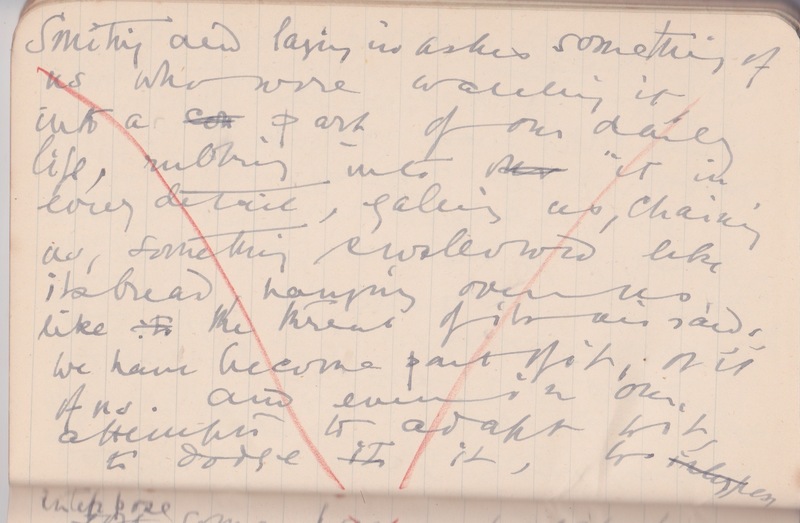 Smiting and laying in ashes something of
us who were watching it
into a part of our daily
life, rubbing into it in
every detail, galling us, chaining
us, something swallowed like
its bread, hanging over us
like the threat of its air raids.
We have become part of it, or it
of us. and even in our
attempts to adapt to it,
to dodge it, to
interpose